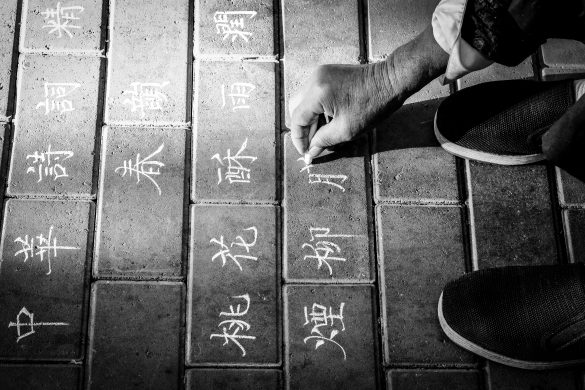 中華詩詞精
春蘭
桃花酥雨潤
煙柳